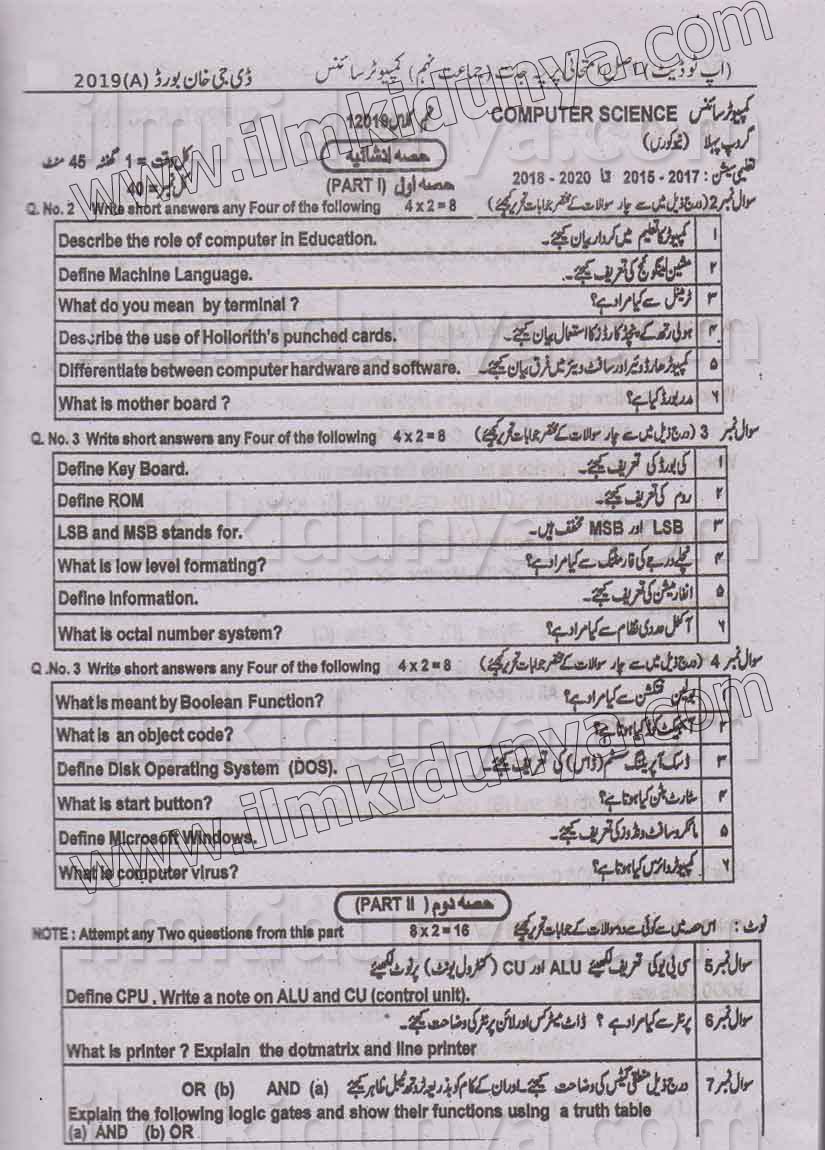 (اپ ٹو ڈیٹ) اصل امتحانی پرچہ جات (جماعت نہم) کمپیوٹر سائنس ڈی جی خان بورڈ 2019(A)
COMPUTER SCIENCE کمپیوٹر سائنس
گروپ پہلا (نیو کورس)
حصہ انشائیہ
کل وقت = 1 گھنٹہ 45 منٹ
تعلیمی سیشن : 2017 - 2015 تا 2020 - 2018
حصہ اول (PART I)
کل نمبر = 40
Q. No. 2 Write short answers any Four of the following 4 x 2 = 8 سوال نمبر 2 (درج ذیل میں سے چار سوالات کے مختصر جوابات تحریر کیجئے)
Describe the role of computer in Education. کمپیوٹر کا تعلیم میں کردار بیان کیجئے۔ ۱
Define Machine Language. مشین لینگوئج کی تعریف کیجئے۔ ۲
What do you mean by terminal ? ٹرمینل سے کیا مراد ہے؟ ۳
Describe the use of Hollorith's punched cards. ہولی رتھ کے پنچڈ کارڈز کا استعمال بیان کیجئے۔ ۴
Differentiate between computer hardware and software. کمپیوٹر ہارڈ وئیر اور سافٹ وئیر میں فرق بیان کیجئے۔ ۵
What is mother board ? مدر بورڈ کیا ہے؟ ۶
Q. No. 3 Write short answers any Four of the following 4 x 2 = 8 سوال نمبر 3 (درج ذیل میں سے چار سوالات کے مختصر جوابات تحریر کیجئے)
Define Key Board. کی بورڈ کی تعریف کیجئے۔ ۱
Define ROM روم کی تعریف کیجئے۔ ۲
LSB and MSB stands for. LSB اور MSB مخفف ہیں۔ ۳
What is low level formating? نچلے درجے کی فارمٹنگ سے کیا مراد ہے؟ ۴
Define Information. انفارمیشن کی تعریف کیجئے۔ ۵
What is octal number system? آکٹل عددی نظام سے کیا مراد ہے؟ ۶
Q .No. 3 Write short answers any Four of the following 4 x 2 = 8 سوال نمبر 4 (درج ذیل میں سے چار سوالات کے مختصر جوابات تحریر کیجئے)
What is meant by Boolean Function? بولین فنکشن سے کیا مراد ہے؟ ۱
What is an object code? آبجیکٹ کوڈ کیا ہوتا ہے؟ ۲
Define Disk Operating System (DOS). ڈسک آپریٹنگ سسٹم (ڈاس) کی تعریف کیجئے۔ ۳
What is start button? سٹارٹ بٹن کیا ہوتا ہے؟ ۴
Define Microsoft Windows. مائکرو سافٹ ونڈوز کی تعریف کیجئے۔ ۵
What is computer virus? کمپیوٹر وائرس کیا ہوتا ہے؟ ۶
حصہ دوم (PART II)
NOTE : Attempt any Two questions from this part 8 x 2 = 16 نوٹ : اس حصہ میں سے کوئی سے دو سوالات کے جوابات تحریر کیجئے
سوال نمبر 5 سی پی یو کی تعریف لکھیئے ALU اور CU (کنٹرول یونٹ) پر نوٹ لکھیئے
Define CPU . Write a note on ALU and CU (control unit).
سوال نمبر 6 پرنٹر سے کیا مراد ہے ؟ ڈاٹ میٹرکس اور لائن پرنٹر کی وضاحت کیجئے۔
What is printer ? Explain the dotmatrix and line printer
سوال نمبر 7 درج ذیل منطقی گیٹس کی وضاحت کیجئے۔ اور ان کے کام کو بذریعہ ٹروتھ ٹیبل ظاہر کیجئے AND (a) OR (b)
Explain the following logic gates and show their functions using a truth table
(a) AND (b) OR
www.ilmkidunya.com
www.ilmkidunya.com
ilmkidunya.com
ilmkidunya.com
ilmkidunya.com
ilmkidunya.com
ilmkidunya.com